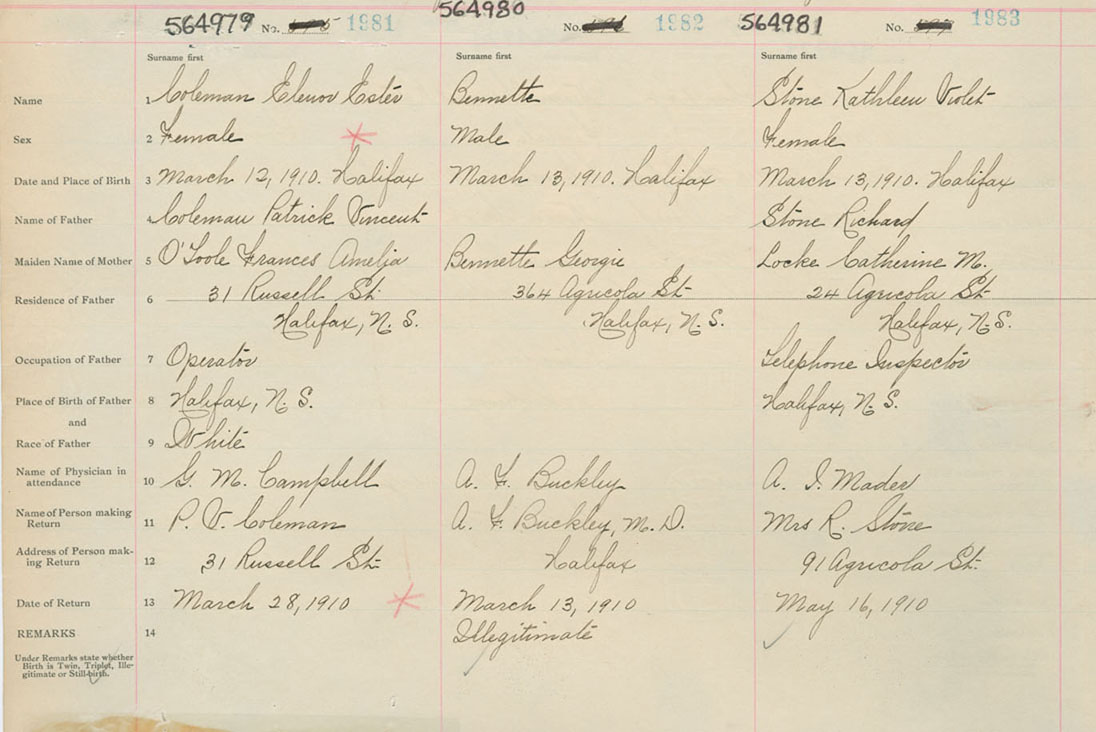 564979 No. 1981 564980 No. 1982 564981 No. 1983
Surname first Surname first Surname first
Name 1 Coleman Elenor Ester Bennette Stone Kathleen Violet
Sex 2 Female Male Female
Date and Place of Birth 3 March 12, 1910. Halifax March 13, 1910. Halifax March 13, 1910. Halifax
Name of Father 4 Coleman Patrick Vincent Stone Richard
Maiden Name of Mother 5 O'Toole Frances Amelja Bennette Georgie Locke Catherine M.
Residence of Father 6 31 Russell St. 364 Agricola St. 24 Agricola St.
Halifax, N. S. Halifax, N. S. Halifax, N. S.
Occupation of Father 7 Operator Telephone Inspector
Place of Birth of Father 8 Halifax, N. S. Halifax, N. S.
and
Race of Father 9 White
Name of Physician in
attendance 10 G. M. Campbell A. F. Buckley A. I. Mader
Name of Person making
Return 11 P. V. Coleman A. F. Buckley, M. D. Mrs R. Stone
Address of Person mak-
ing Return 12 31 Russell St. Halifax 91 Agricola St.
Date of Return 13 March 28, 1910 March 13, 1910 May 16, 1910
REMARKS 14 Illegitimate
Under Remarks state whether
Birth is Twin, Triplet, Ille-
gitimate or Still-birth.